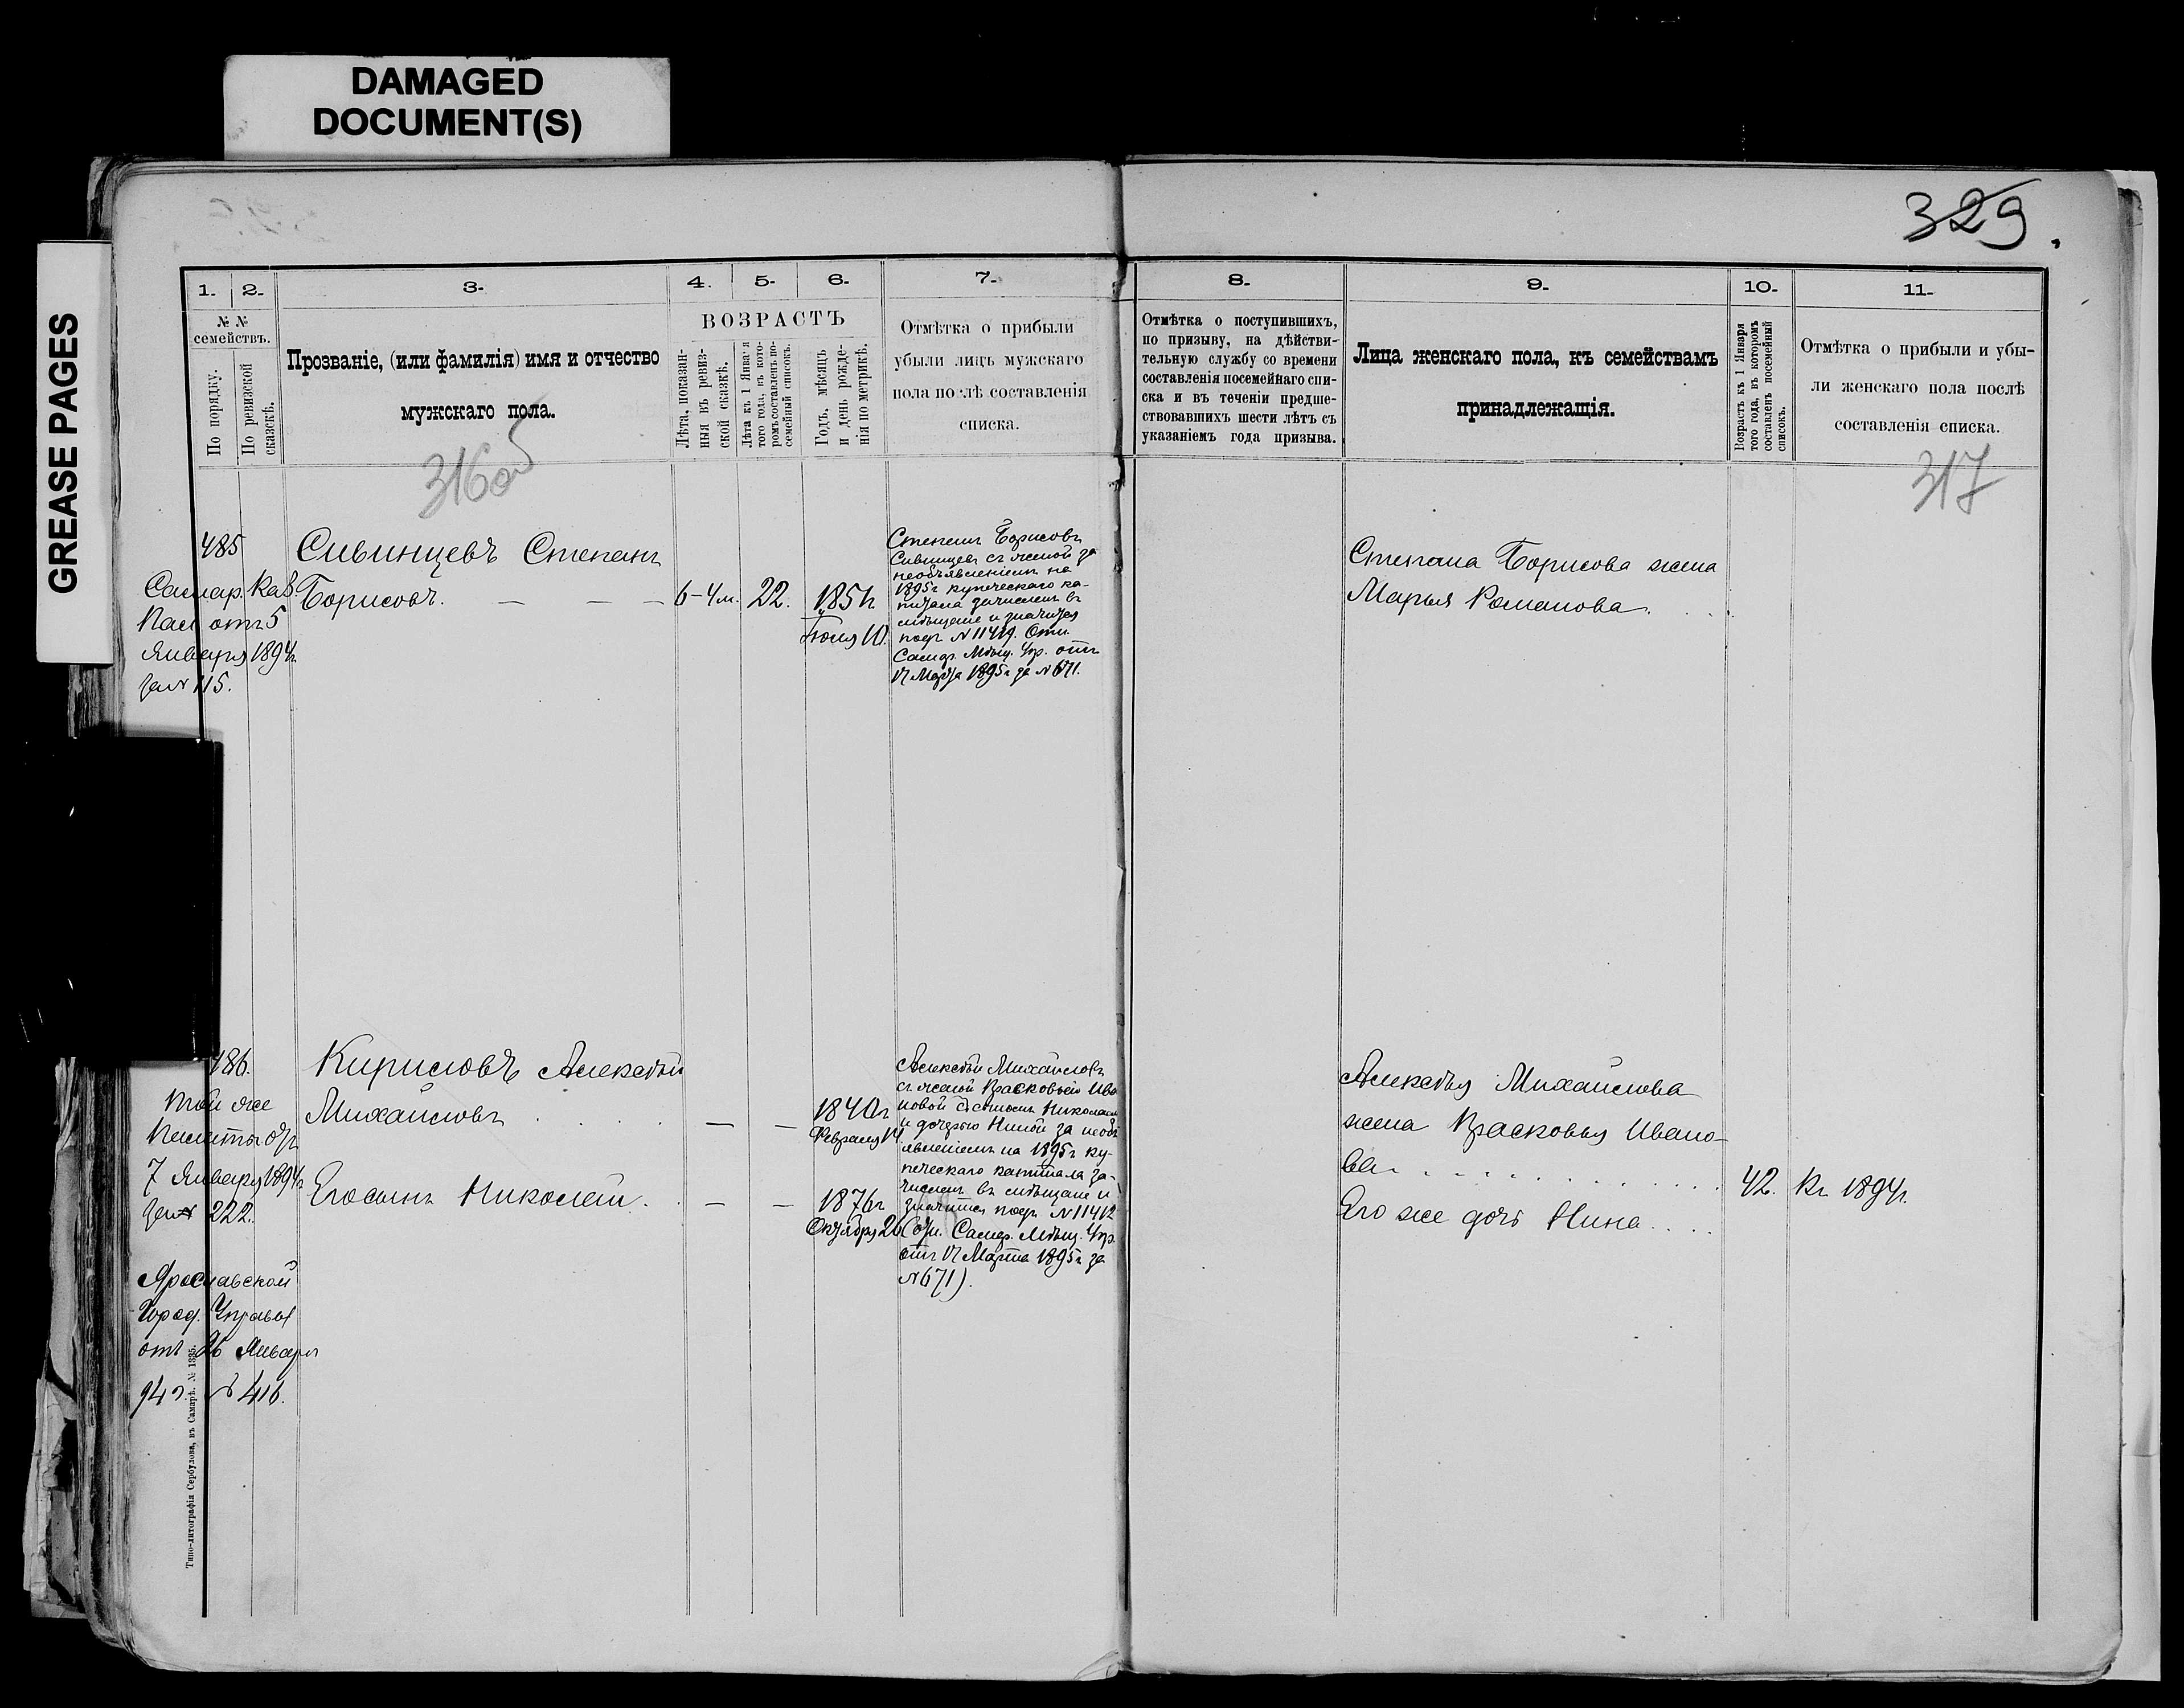 DAMAGED
DOCUMENT(S)
GREASE PAGES
329.
1.
2.
3.
4.
5.
6.
7.
8.
9.
10.
11.
№ №
семействъ.
По порядку.
По ревизской
сказскѣ.
Прозваніе, (или фамилія) имя и отчество
мужскаго пола.
ВОЗРАСТЪ
Лѣта, показан-
ныя въ ревиз-
ской сказкѣ.
Лѣта къ 1 Января
того года, въ кото-
ромъ составленъ по-
семейный списокъ.
Годъ, мѣсяцъ
и день рожде-
нія по метрикѣ.
Отмѣтка о прибыли
убыли лицъ мужскаго
пола послѣ составленія
списка.
Отмѣтка о поступившихъ,
по призыву, на дѣйстви-
тельную службу со времени
составленія посемейнаго спи-
ска и въ теченіи предше-
ствовавшихъ шести лѣтъ съ
указаніемъ года призыва.
Лица женскаго пола, къ семействамъ
принадлежащія.
Возрастъ къ 1 Января
того года, въ которомъ
составленъ посемейный
списокъ.
Отмѣтка о прибыли и убы-
ли женскаго пола послѣ
составленія списка.
316об
317
485
Самар. Каз.
Пал отъ 5
Января 1894г.
за № 115.
Сивинцевъ Степанъ
Борисовъ. — — —
6-4м.
22.
1851г
Іюля 10.
Степанъ Борисовъ
Сивинцевъ съ женой за
необъявленіемъ на
1895г купеческаго ка-
питала зачисленъ въ
мѣщане и значится
подъ № 11419. Отн.
Самар. Мѣщ. Упр. отъ
17 Марта 1895г за № 671.
Степана Борисова жена
Марья Романова.
486.
Той же
Палаты отъ
7 Января 1894г
за № 222.
Ярославской
Город. Управы
отъ 26 Января
94г. № 416.
Кириловъ Алексѣй
Михайловъ
— —
1840г
Февраля 14.
Его сынъ Николай.
— —
1876г
Октября 26
Алексѣй Михайловъ
съ женой Прасковьей Ива
новой съ сыномъ Николаемъ
и дочерью Ниной за необъ
явленіемъ на 1895г ку-
печескаго капитала за-
численъ въ мѣщане и
значится подъ № 11412
(Отн. Самар. Мѣщ. Упр.
отъ 17 Марта 1895г за
№ 671).
Алексѣя Михайлова
жена Прасковья Ивано-
ва
42.
Его же дочь Нина
Къ 1894г.
Типо-литографія Сербулова, въ Самарѣ. № 1335.